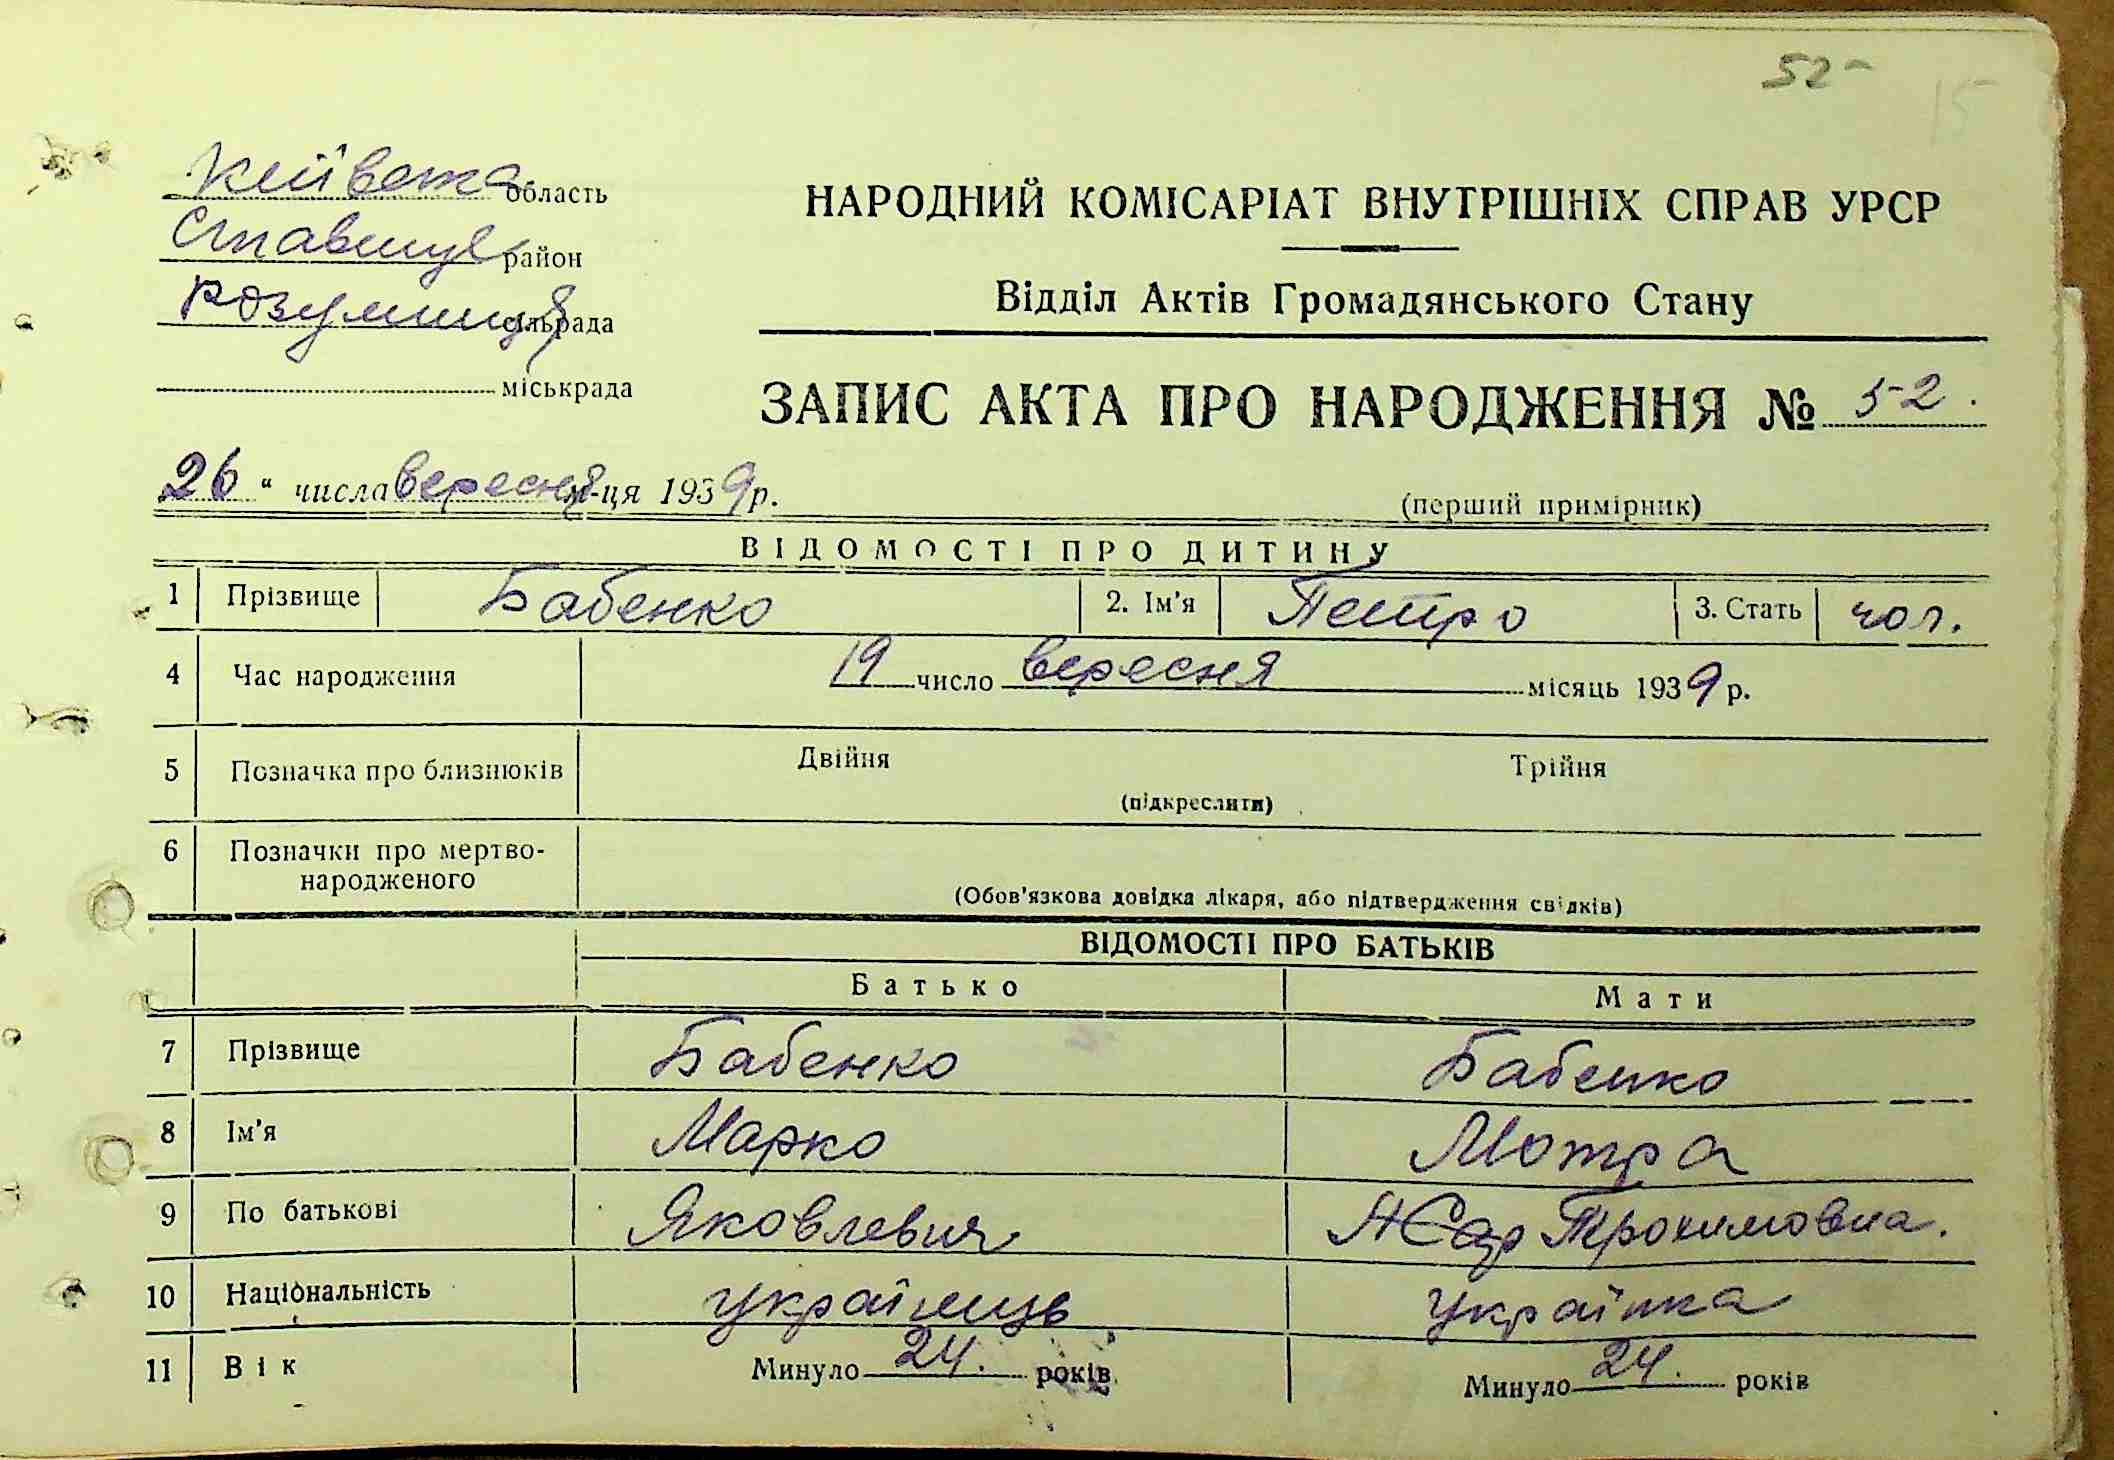 52
15
Київська область
Ставище район
Розумниця сільрада
міськрада
НАРОДНИЙ КОМІСАРІАТ ВНУТРІШНІХ СПРАВ УРСР
Відділ Актів Громадянського Стану
ЗАПИС АКТА ПРО НАРОДЖЕННЯ № 52.
26 " числа вересня м-ця 1939 р.
(перший примірник)
ВІДОМОСТІ ПРО ДИТИНУ
1 Прізвище Бабенко 2. Ім'я Петро 3. Стать чол.
4 Час народження 19 число вересня місяць 1939 р.
5 Позначка про близнюків Двійня Трійня
(підкреслити)
6 Позначки про мертво-
народженого
(Обов'язкова довідка лікаря, або підтвердження свідків)
ВІДОМОСТІ ПРО БАТЬКІВ
Батько Мати
7 Прізвище Бабенко Бабенко
8 Ім'я Марко Мотра
9 По батькові Яковлевич Трохимовна.
10 Національність українець українка
11 Вік Минуло 24. років Минуло 24. років